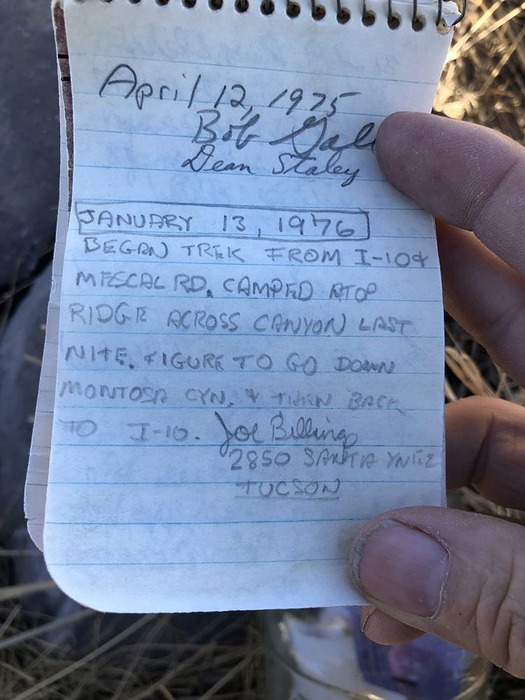 April 12, 1975
Bob
Dean Staley
JANUARY 13, 1976
BEGAN TREK FROM I-10 &
MESCAL RD. CAMPED ATOP
RIDGE ACROSS CANYON LAST
NITE. FIGURE TO GO DOWN
MONTOSA CYN. & THEN BACK
TO I-10. Joe Billings
2850 SANTA YNEZ
TUCSON